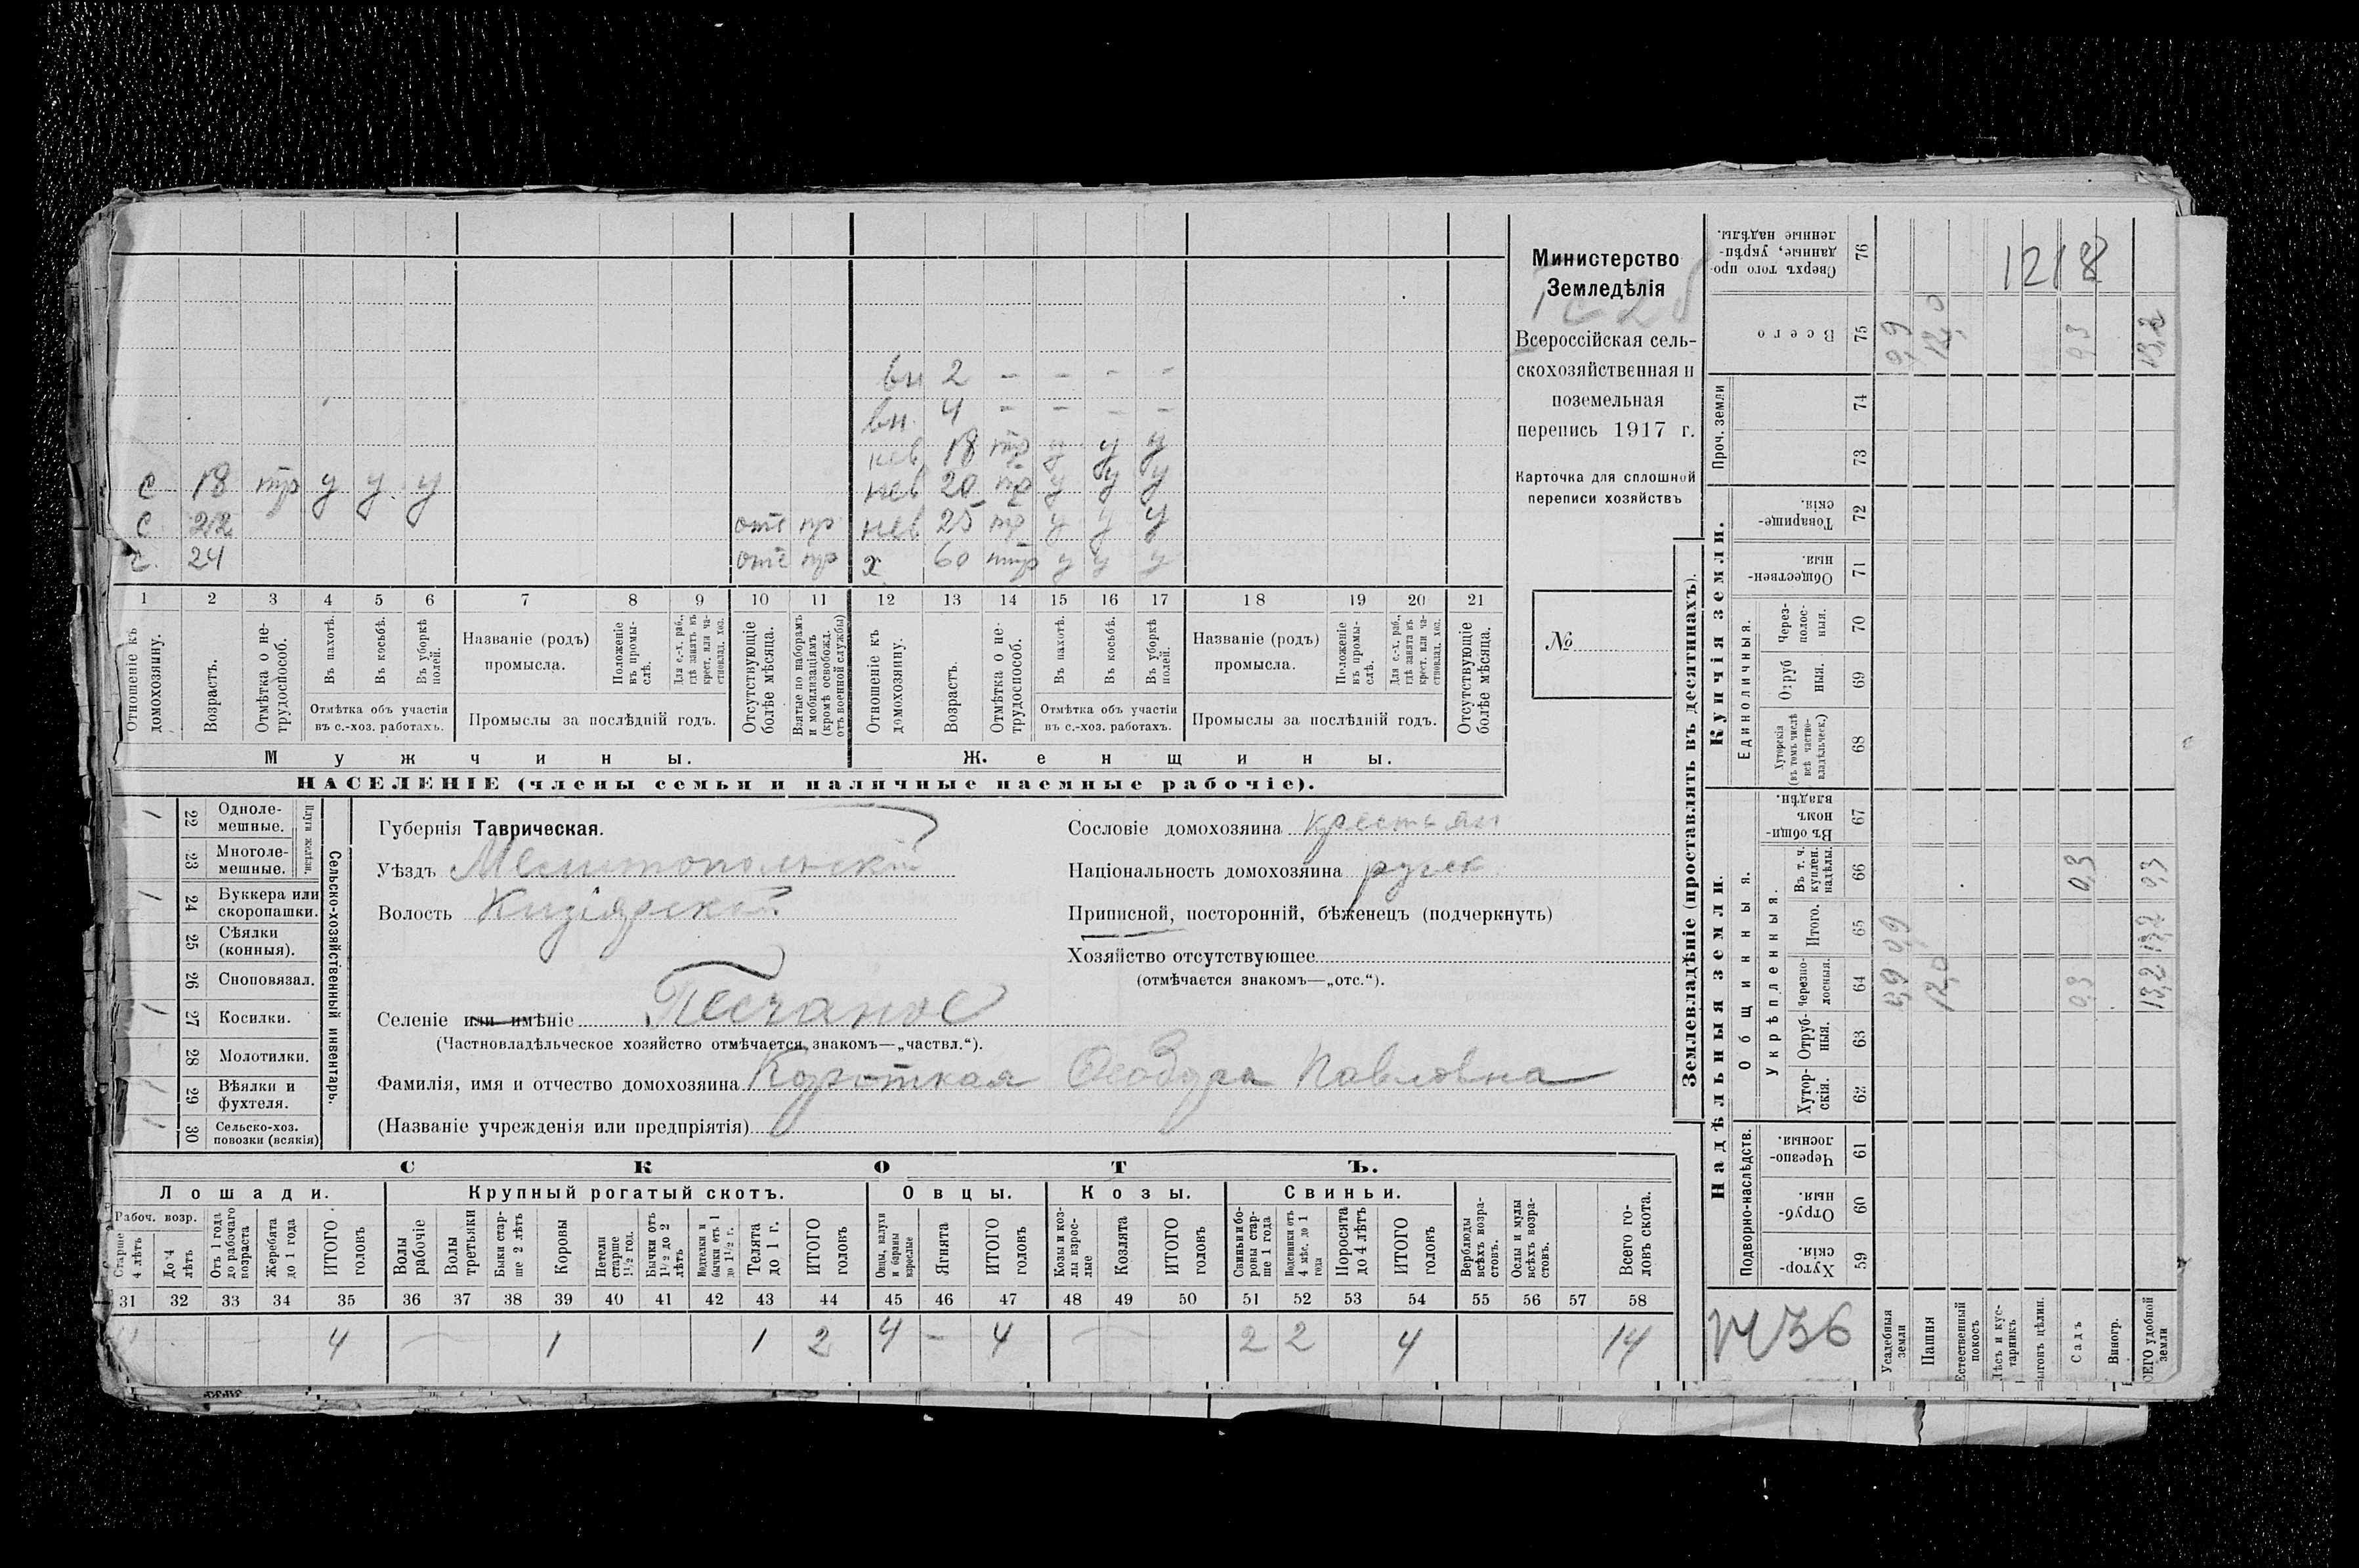 1218
Министерство
Земледѣлія
Всероссійская сель-
скохозяйственная и
поземельная
перепись 1917 г.
Карточка для сплошной
переписи хозяйствъ
№
вн 2 - - - -
вн. 4 - - - -
нев 18 тр у у у
с 18 тр у у у
нев 20 тр у у у
с 22 отс пр
нев 25 тр у у у
с. 24 отс пр
х 60 тр у у у
1 2 3 4 5 6 7 8 9 10 11 12 13 14 15 16 17 18 19 20 21
Отношеніе къ домохозяину.
Возрастъ.
Отмѣтка о не-трудоспособ.
Въ пахотѣ.
Въ косьбѣ.
Въ уборкѣ полей.
Отмѣтка объ участіи
въ с.-хоз. работахъ.
Названіе (родъ)
промысла.
Положеніе въ промы-слѣ.
Для с.-х. раб., гдѣ занятъ въ крест. или ча-стновлад. хоз.
Промыслы за послѣдній годъ.
Отсутствующіе болѣе мѣсяца.
Взятые по наборамъ и мобилизаціямъ (кромѣ освобожд. отъ военной службы)
Отношеніе къ домохозяину.
Возрастъ.
Отмѣтка о не-трудоспособ.
Въ пахотѣ.
Въ косьбѣ.
Въ уборкѣ полей.
Отмѣтка объ участіи
въ с.-хоз. работахъ.
Названіе (родъ)
промысла.
Положеніе въ промы-слѣ.
Для с.-х. раб., гдѣ занята въ крест. или ча-стновлад. хоз.
Промыслы за послѣдній годъ.
Отсутствующіе болѣе мѣсяца.
Мужчины.
Женщины.
НАСЕЛЕНІЕ (члены семьи и наличные наемные рабочіе).
Сельско-хозяйственный инвентарь.
Плуги желѣзн.
1 22 Одноле-мешные.
23 Многоле-мешные.
1 24 Буккера или скоропашки.
25 Сѣялки (конныя).
26 Сноповязал.
1 27 Косилки.
28 Молотилки.
1 29 Вѣялки и фухтеля.
30 Сельско-хоз. повозки (всякія)
Губернія Таврическая.
Уѣздъ Мелитопольскій
Волость Кизіярской
Селеніе или имѣніе Песчаное
(Частновладѣльческое хозяйство отмѣчается знакомъ—„частвл.“).
Фамилія, имя и отчество домохозяина Короткая Феодора Павловна
(Названіе учрежденія или предпріятія)
Сословіе домохозяина крестьян
Національность домохозяина русск
Приписной, посторонній, бѣженецъ (подчеркнуть)
Хозяйство отсутствующее
(отмѣчается знакомъ—„отс.“).
СКОТЪ.
Лошади.
Крупный рогатый скотъ.
Овцы.
Козы.
Свиньи.
Рабоч. возр.
Старше 4 лѣтъ
До 4 лѣтъ
Отъ 1 года до рабочаго возраста
Жеребята до 1 года
ИТОГО головъ
Волы рабочіе
Волы третьяки
Быки стар-ше 2 лѣтъ
Коровы
Нетели старше 1½ год.
Бычки отъ 1½ до 2 лѣтъ
Подтелки и бычки отъ 1 до 1½ г.
Телята до 1 г.
ИТОГО головъ
Овцы, валухи и бараны взрослые
Ягнята
ИТОГО головъ
Козы и коз-лы взрос-лые
Козлята
ИТОГО головъ
Свиньи и бо-ровы стар-ше 1 года
Подсвинки отъ 4 мѣс. до 1 года
Поросята до 4 лѣтъ
ИТОГО головъ
Верблюды всѣхъ возра-стовъ.
Ослы и мулы всѣхъ возра-стовъ.
Всего го-ловъ скота.
31 32 33 34 35 36 37 38 39 40 41 42 43 44 45 46 47 48 49 50 51 52 53 54 55 56 57 58
4 1 1 2 4 - 4 2 2 4 14
Землевладѣніе (проставлять въ десятинахъ).
Сверхъ того про-данные, укрѣп-ленные надѣлы. 76
Всего 75 0,9 12,0 0,3 13,2
Купчія земли.
Проч. земли
74
73
Товарище-скія. 72
Обществен-ныя. 71
Единоличныя.
Через-полос-ныя. 70
Отруб ныя. 69
Хуторскія (въ томъ числѣ всѣ частно-владѣльческ.) 68
Надѣльныя земли.
Общинныя.
Въ общи-номъ владѣн. 67
Укрѣпленныя.
Въ т. ч. куплен. надѣлы. 66 0,3 0,3
Итого. 65 0,9 13,2
Черезпо-лосныя. 64 0,9 12,0 0,3 13,2
Отруб-ныя. 63
Хутор-скія. 62
Подворно-наслѣдств.
Черезпо-лосныя. 61
Отруб-ныя. 60
Хутор-скія. 59
Усадебныя земли
Пашня
Естественный покосъ
Лѣсъ и кус-тарникъ
Садъ
Виногр.